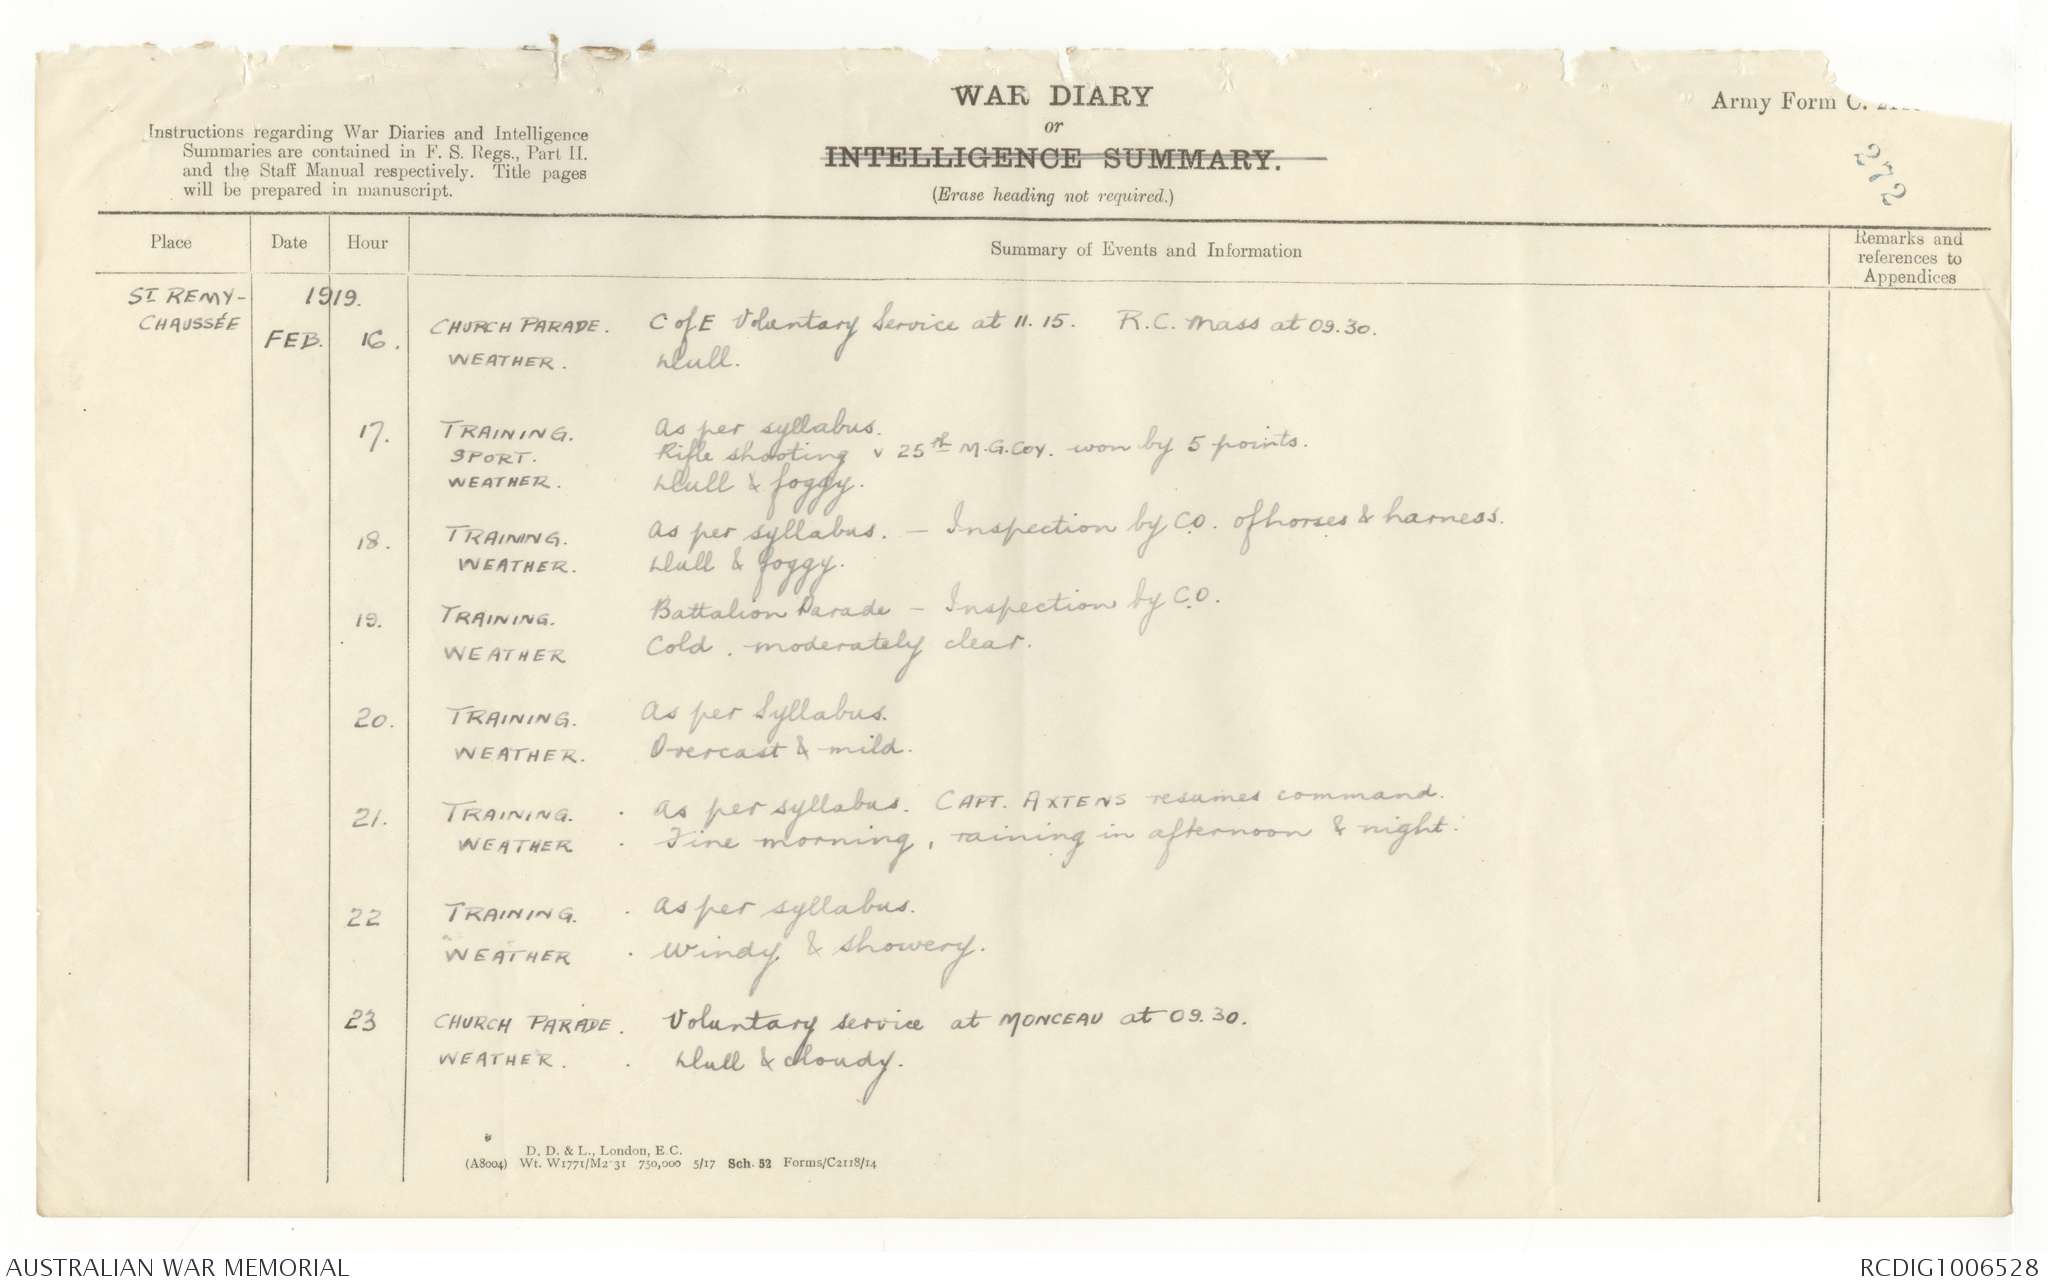 WAR DIARY
or
INTELLIGENCE SUMMARY.
(Erase heading not required.)
Army Form C.
272
Instructions regarding War Diaries and Intelligence
Summaries are contained in F. S. Regs., Part II.
and the Staff Manual respectively. Title pages
will be prepared in manuscript.
Place Date Hour Summary of Events and Information Remarks and references to Appendices
ST REMY- 1919.
CHAUSSÉE
FEB. 16. CHURCH PARADE. C of E Voluntary Service at 11.15. R.C. Mass at 09.30.
WEATHER. Dull.
17. TRAINING. As per syllabus.
SPORT. Rifle shooting v 25th M.G.Coy. won by 5 points.
WEATHER. Dull & foggy.
18. TRAINING. As per syllabus. - Inspection by C.O. of horses & harness.
WEATHER. Dull & foggy.
19. TRAINING. Battalion Parade - Inspection by C.O.
WEATHER Cold. moderately clear.
20. TRAINING. As per Syllabus.
WEATHER. Overcast & mild.
21. TRAINING. As per syllabus. CAPT. AXTENS resumes command.
WEATHER. Fine morning, raining in afternoon & night.
22 TRAINING. As per syllabus.
WEATHER. Windy & showery.
23 CHURCH PARADE. Voluntary service at MONCEAU at 09.30.
WEATHER. Dull & cloudy.
D. D. & L., London, E.C.
(A8004) Wt. W1771/M2 31 750,000 5/17 Sch. 52 Forms/C2118/14
AUSTRALIAN WAR MEMORIAL RCDIG1006528